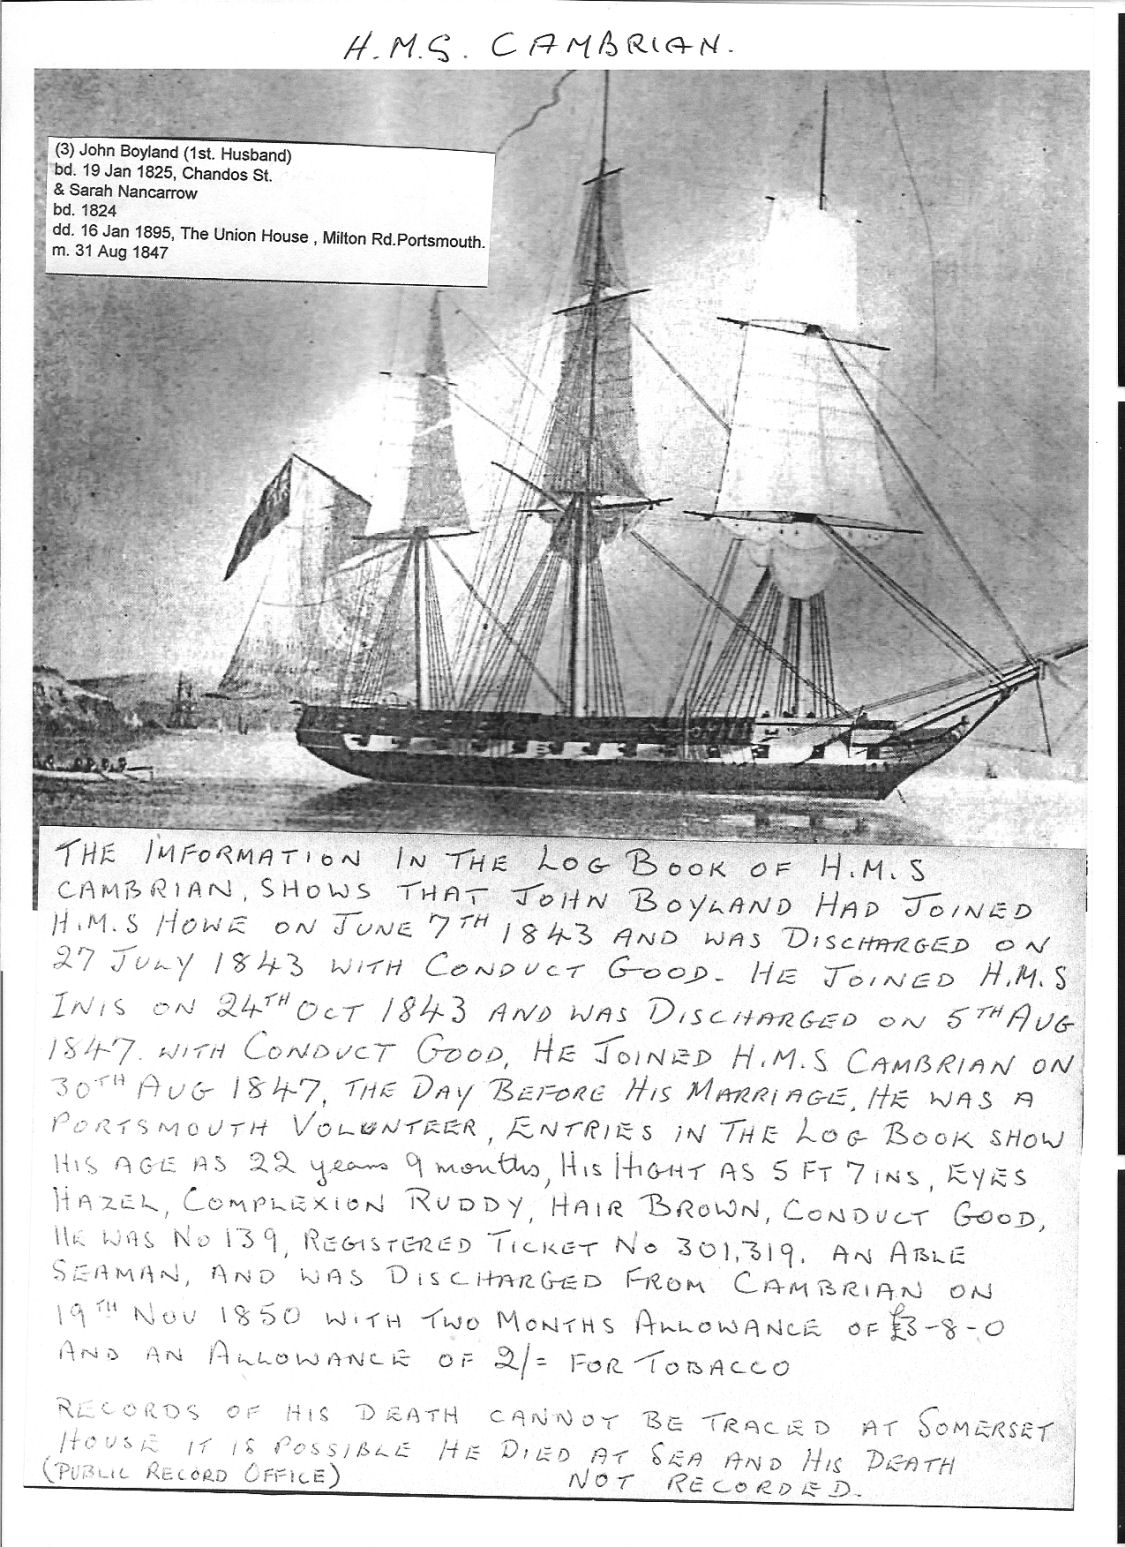 H.M.S. CAMBRIAN.
(3) John Boyland (1st. Husband)
bd. 19 Jan 1825, Chandos St.
& Sarah Nancarrow
bd. 1824
dd. 16 Jan 1895, The Union House , Milton Rd.Portsmouth.
m. 31 Aug 1847
THE IMFORMATION IN THE LOG BOOK OF H.M.S
CAMBRIAN, SHOWS THAT JOHN BOYLAND HAD JOINED
H.M.S HOWE ON JUNE 7TH 1843 AND WAS DISCHARGED ON
27 JULY 1843 WITH CONDUCT GOOD. HE JOINED H.M.S
INIS ON 24TH OCT 1843 AND WAS DISCHARGED ON 5TH AUG
1847. WITH CONDUCT GOOD, HE JOINED H.M.S CAMBRIAN ON
30TH AUG 1847, THE DAY BEFORE HIS MARRIAGE, HE WAS A
PORTSMOUTH VOLUNTEER, ENTRIES IN THE LOG BOOK SHOW
HIS AGE AS 22 years 9 months, HIS HIGHT AS 5 FT 7 INS, EYES
HAZEL, COMPLEXION RUDDY, HAIR BROWN, CONDUCT GOOD,
HE WAS No 139, REGISTERED TICKET No 301,319. AN ABLE
SEAMAN, AND WAS DISCHARGED FROM CAMBRIAN ON
19TH NOV 1850 WITH TWO MONTHS ALLOWANCE OF £3-8-0
AND AN ALLOWANCE OF 2/= FOR TOBACCO
RECORDS OF HIS DEATH CANNOT BE TRACED AT SOMERSET
HOUSE IT IS POSSIBLE HE DIED AT SEA AND HIS DEATH
(PUBLIC RECORD OFFICE) NOT RECORDED.